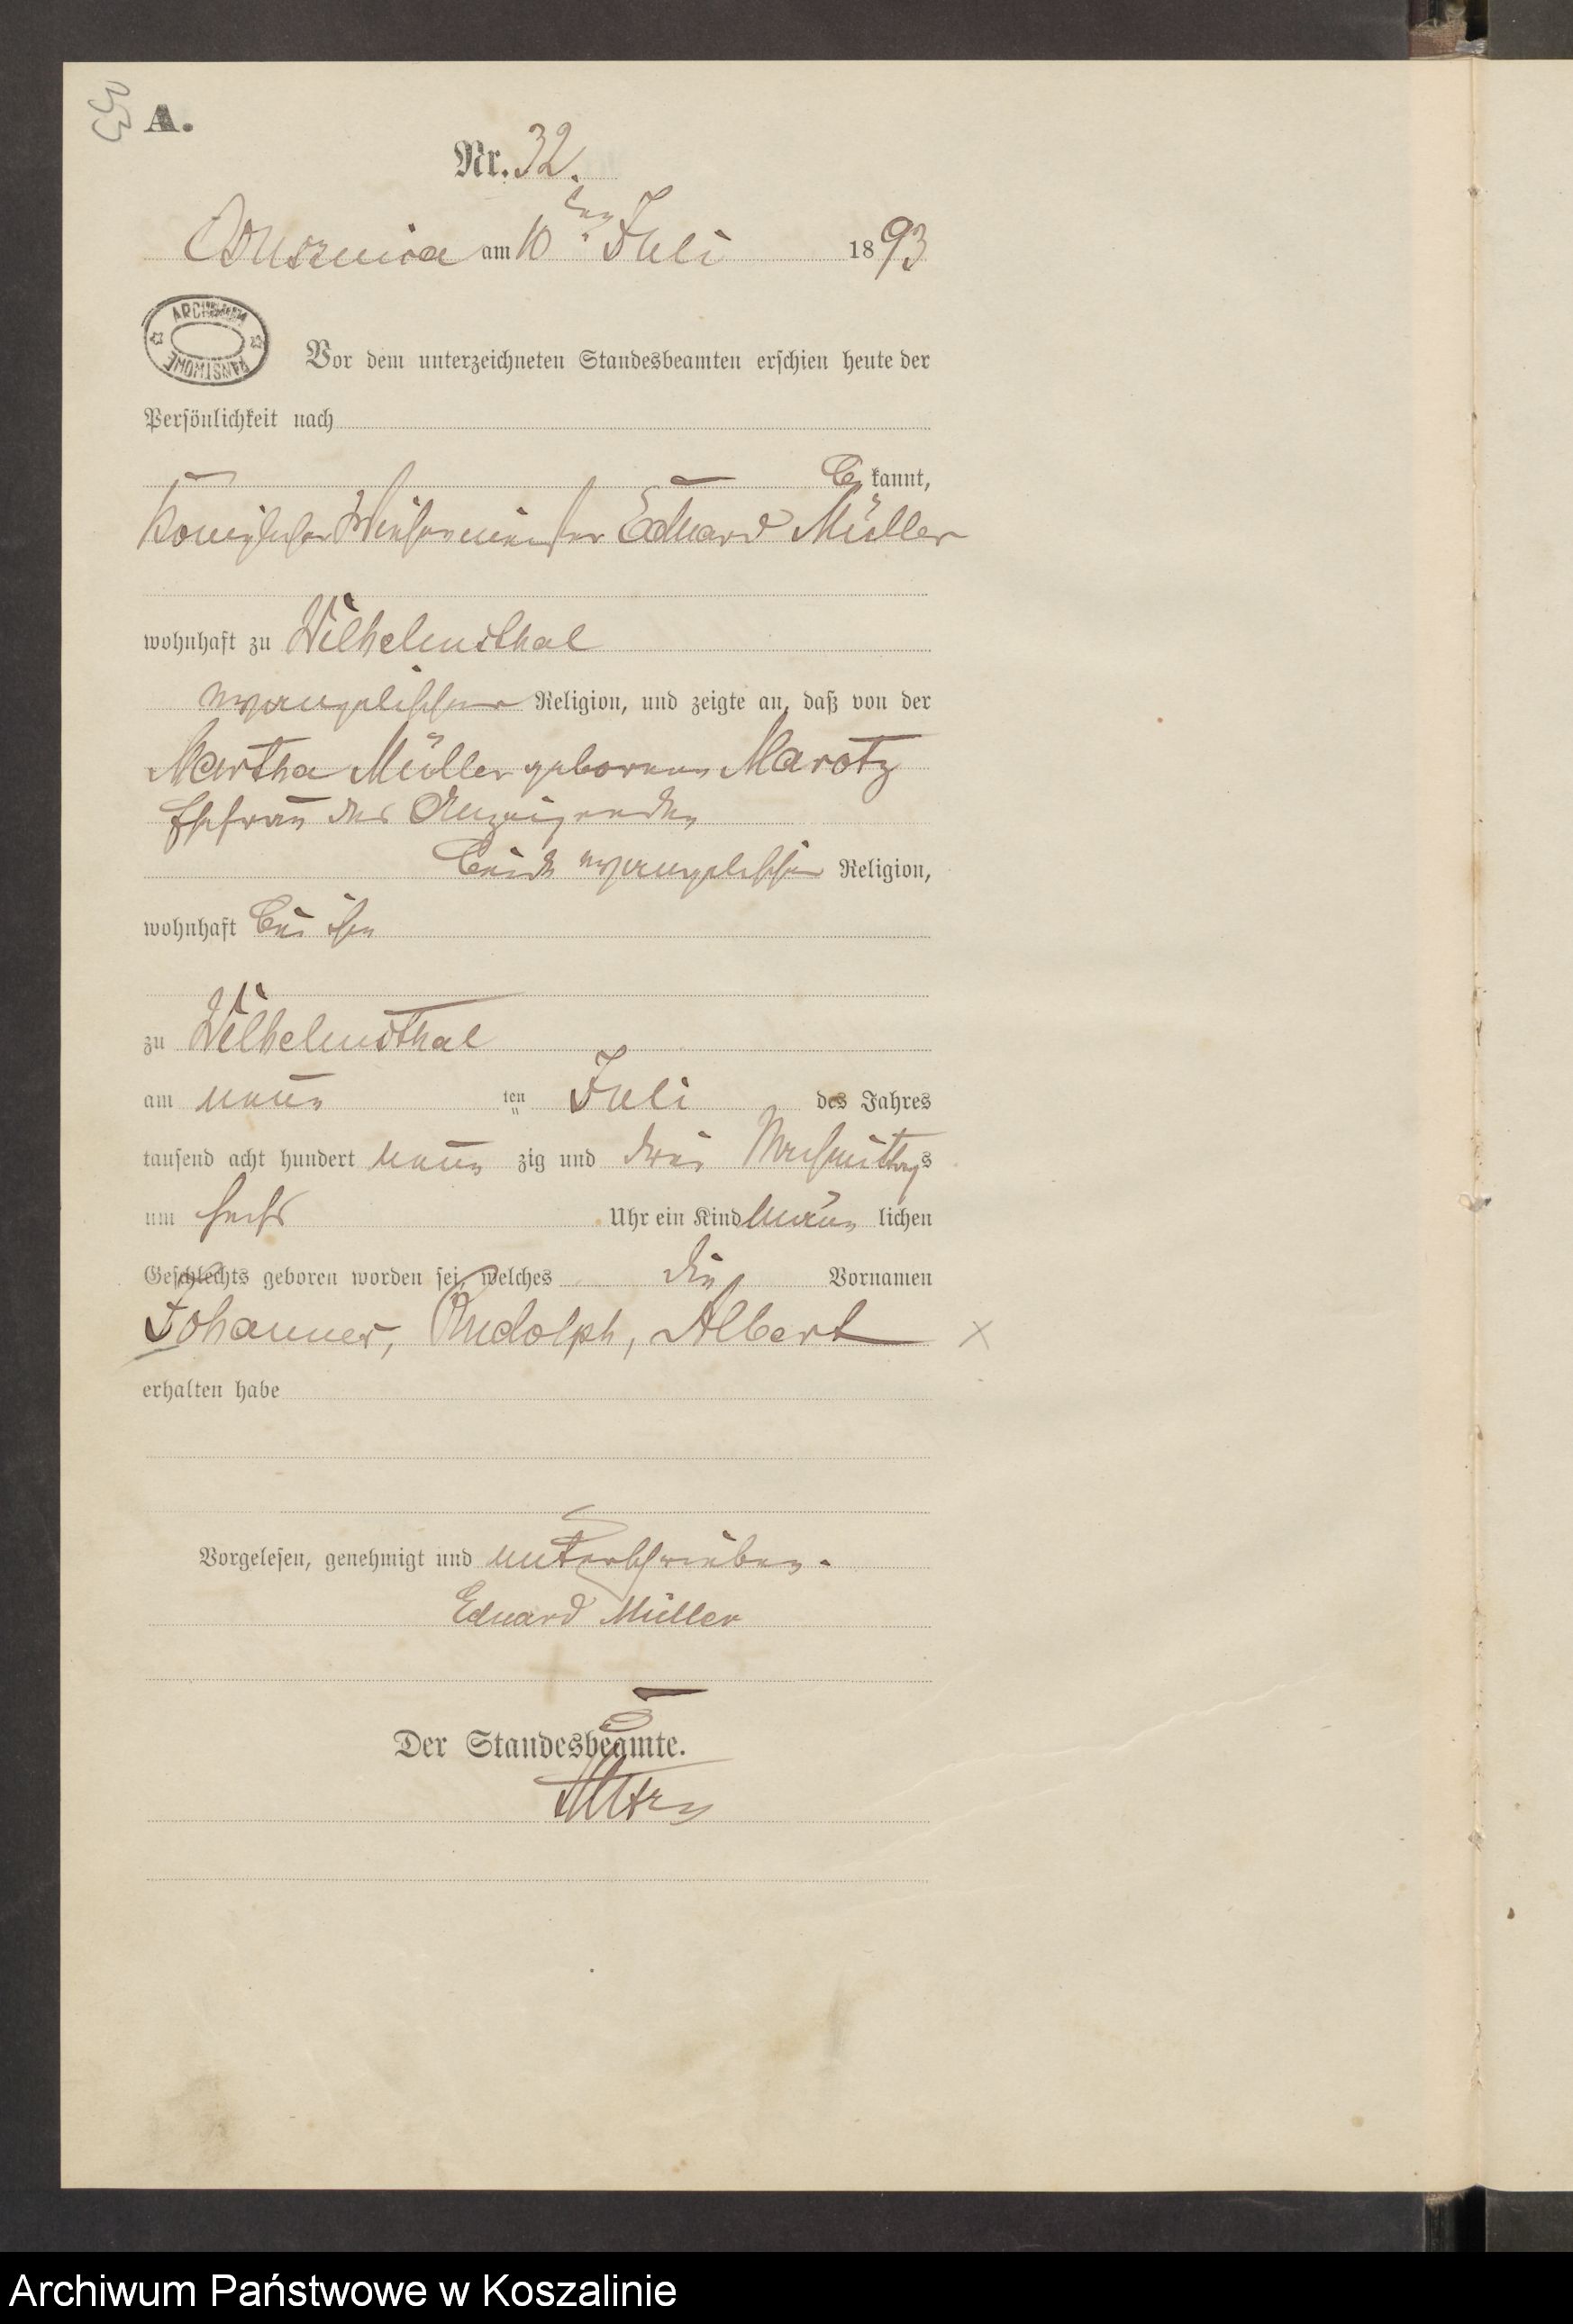 33
A.
Nr. 32.
am 10ten Juli 1893
ARCHIWUM PAŃSTWOWE
Vor dem unterzeichneten Standesbeamten erschien heute der
Persönlichkeit nach
be kannt,
Königlicher Wiesenmeister Eduard Müller
wohnhaft zu Wilhelmsthal
evangelischer Religion, und zeigte an, daß von der
Martha Müller geborenen Marotz
Ehefrau des Anzeigenden
beide evangelischer Religion,
wohnhaft bei ihm
zu Wilhelmsthal
am neun ten Juli des Jahres
tausend acht hundert neun zig und drei Nachmittags
um sechs Uhr ein Kind männ lichen
Geschlechts geboren worden sei, welches die Vornamen
Johannes, Rudolph, Albert
erhalten habe
Vorgelesen, genehmigt und unterschrieben.
Eduard Müller
Der Standesbeamte.
Archiwum Państwowe w Koszalinie